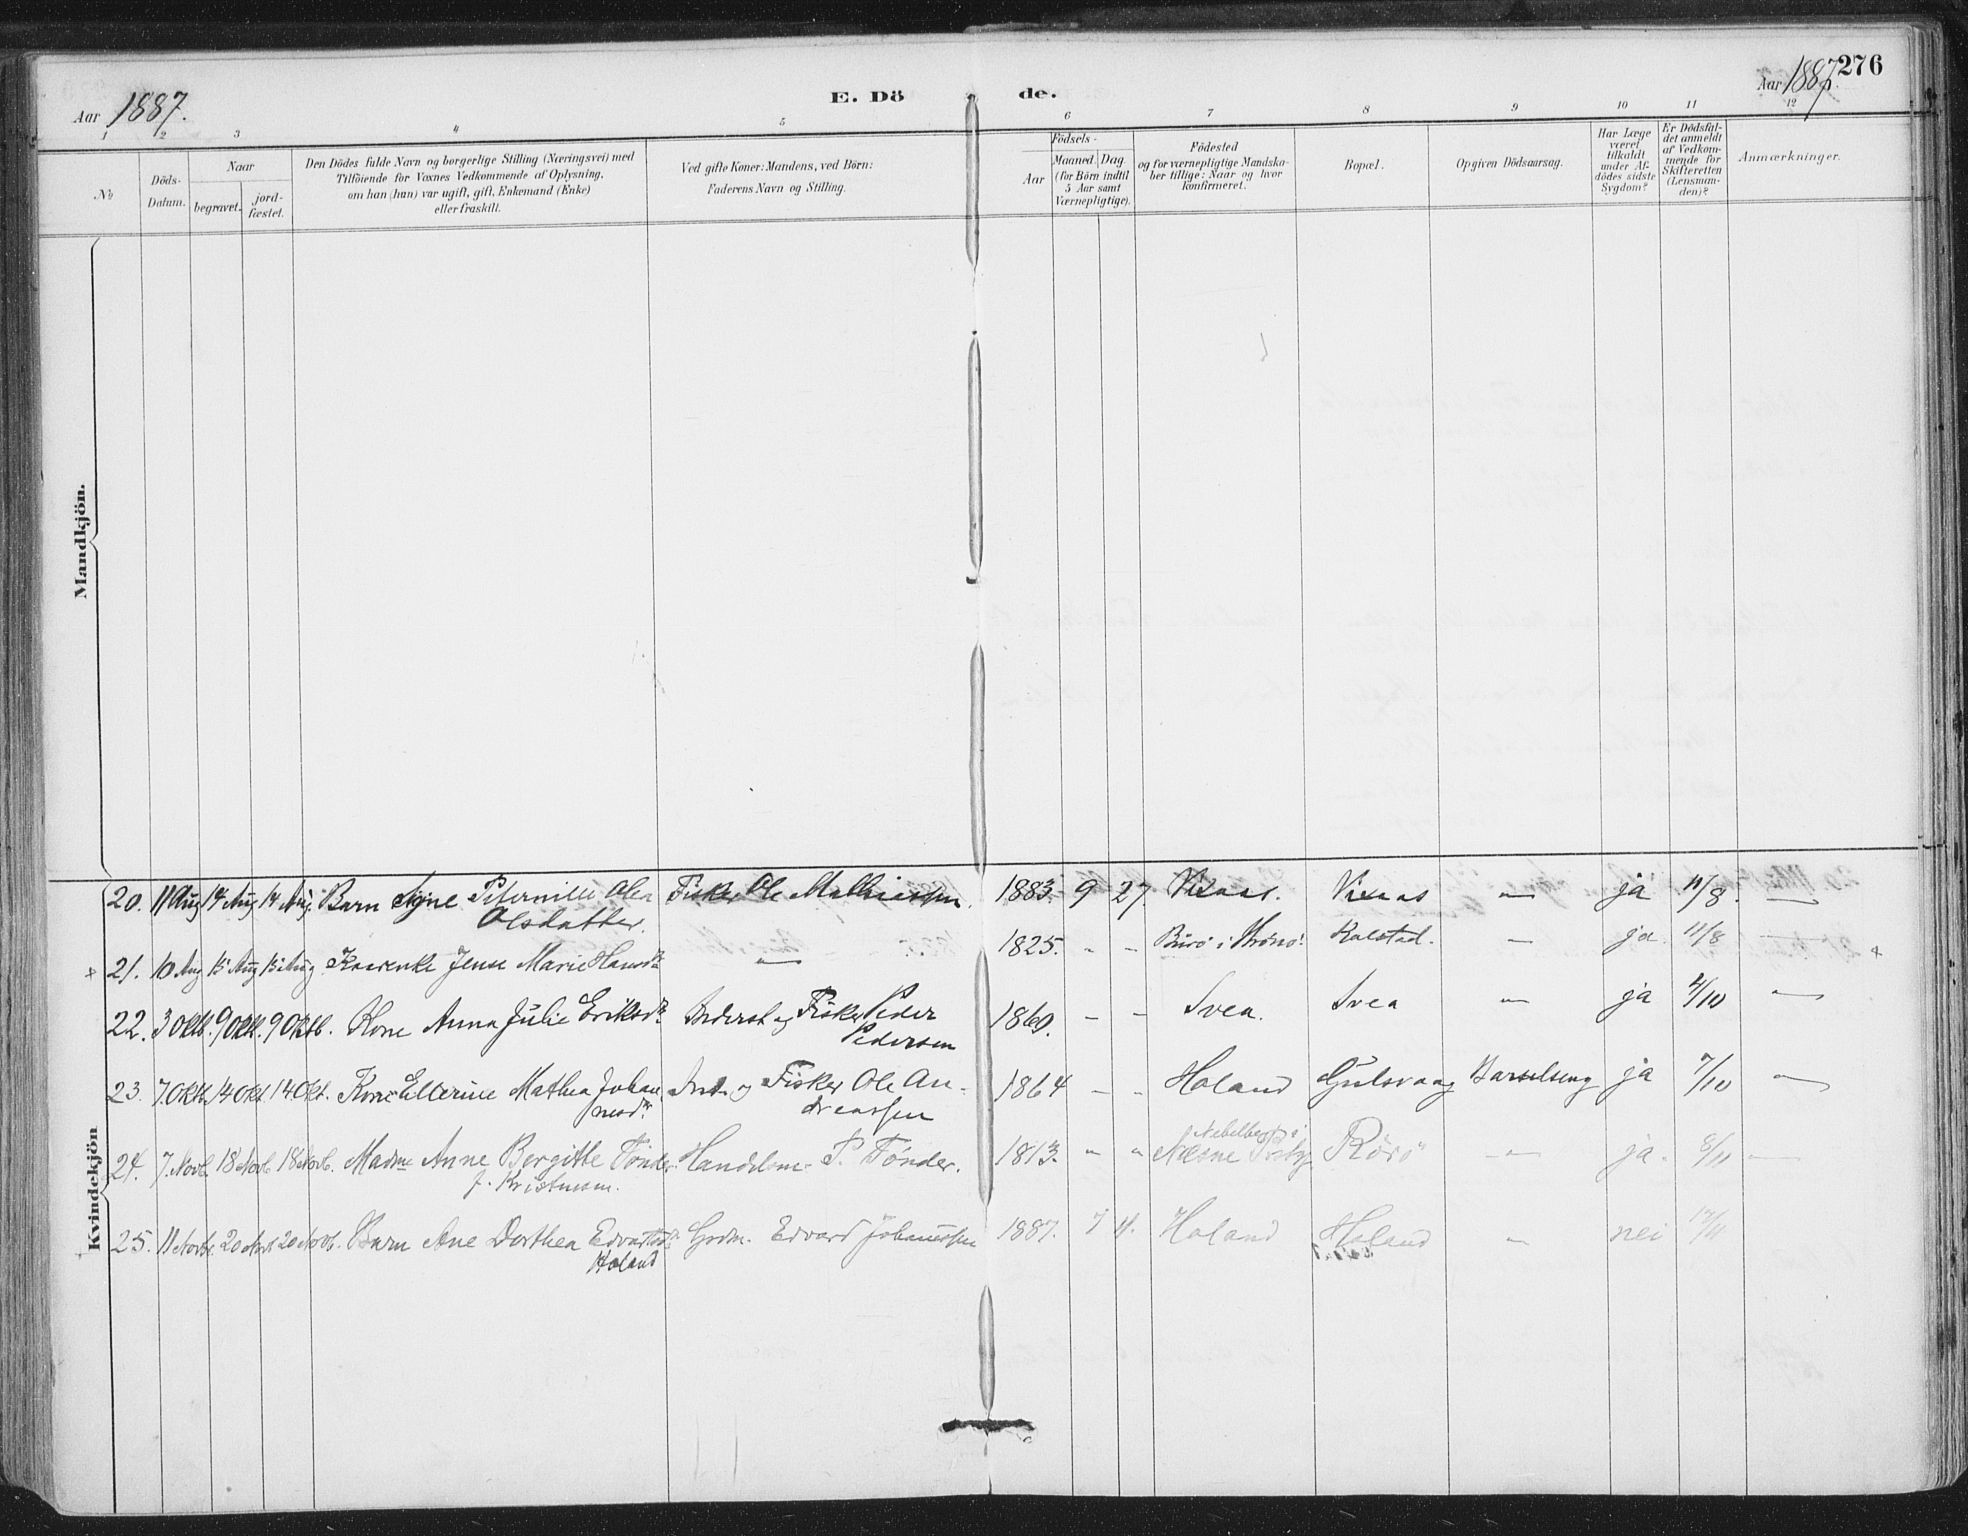 Aar 1887. E. Dö de. Aar 1887. 276
1 2 3 4 5 6 7 8 9 10 11 12
No
Döds-Datum.
Naar
begravet.
jord-fæstet.
Den Dödes fulde Navn og borgerlige Stilling (Næringsvei) med
Tilföiende for Voxnes Vedkommende af Oplysning,
om han (hun) var ugift, gift, Enkemand (Enke)
eller fraskilt.
Ved gifte Koner: Mandens, ved Börn:
Faderens Navn og Stilling.
Födsels-
Aar
Maaned. Dag.
(for Börn indtil
5 Aar samt
Værnepligtige).
Födested
og for værnepligtige Mandska-
ber tillige: Naar og hvor
konfirmeret.
Bopæl.
Opgiven Dödsaarsag.
Har Læge
været
tilkaldt
under Af-
dödes sidste
Sygdom?
Er Dödsfal-
det anmeldt
af Vedkom-
mende for
Skifteretten
(Lensman-
den)?
Anmærkninger.
Mandkjön.
Kvindekjön
20. 11 Aug 14 Aug 14 Aug. Barn Signe Peternille Olea Fisker Ole Mathiessen. 1883. 9 27 — ja 11/8. —
Olsdatter.
21. 10 Aug 15 Aug 15 Aug Jense Marie Hansdr — 1825. - - — ja 11/8 —
22. 3 Oktb. 9 Okt. 9 Oktb. Kone Anna Julie Eriksdr og Fisker Peder 1860. - - Svea. Svea — ja 4/10 —
Pedersen
23. 7. Oktb. 14 Okt. 14 Okt. Kone Ellerine Mathea Johan- Ind. og Fisker Ole An- 1864 - - Holand Gulsvaag Barselseng ja 7/10 —
nesdr. dreassen
24. 7. Novb. 18 Novb. 18 Novb. Madme Anne Bergitte Tönder Handelsm. P. Tönder. 1813. - - Næsne Rörö — ja. 8/11 —
f. Kristensen.
25. 11 Novbr. 20 Novb. 20 Novb. Barn Ane Dorthea Edvardsdr Grdm. Edvard Johannessen 1887. 7 4. Holand Holand — nei 17/11
Holand